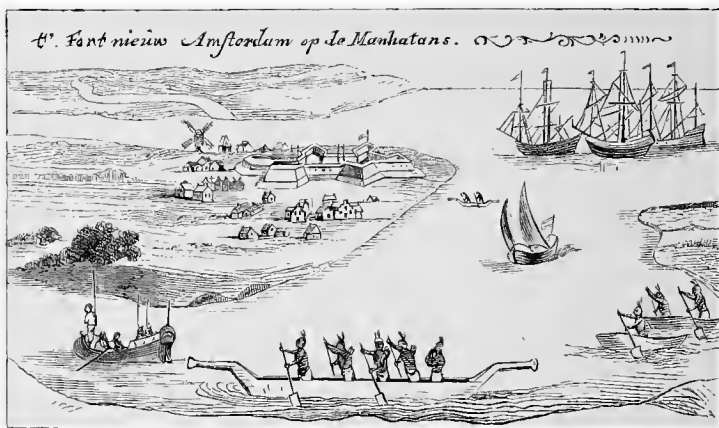 t'. Fort nieüw Amsterdam op de Manhatans.